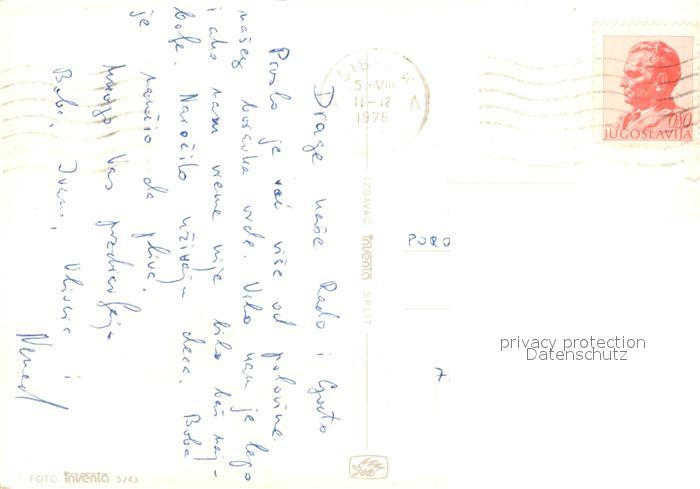 Drage naše Rado i
Prošlo je već više od polovine
našeg boravka ovde. Vrlo nam je lepo
i ako nam vreme nije bilo baš naj-
bolje. Naročito uživaju deca. Boba
je naučio da pliva.
Mnogo Vas pozdravljaju
Boba, Ivana, Olivera i
Nenad
ŠIB
5.-VIII
11-12
1976
0,80
JUGOSLAVIJA
IZDAVAČ inventa SPLIT
privacy protection
Datenschutz
FOTO inventa 5243